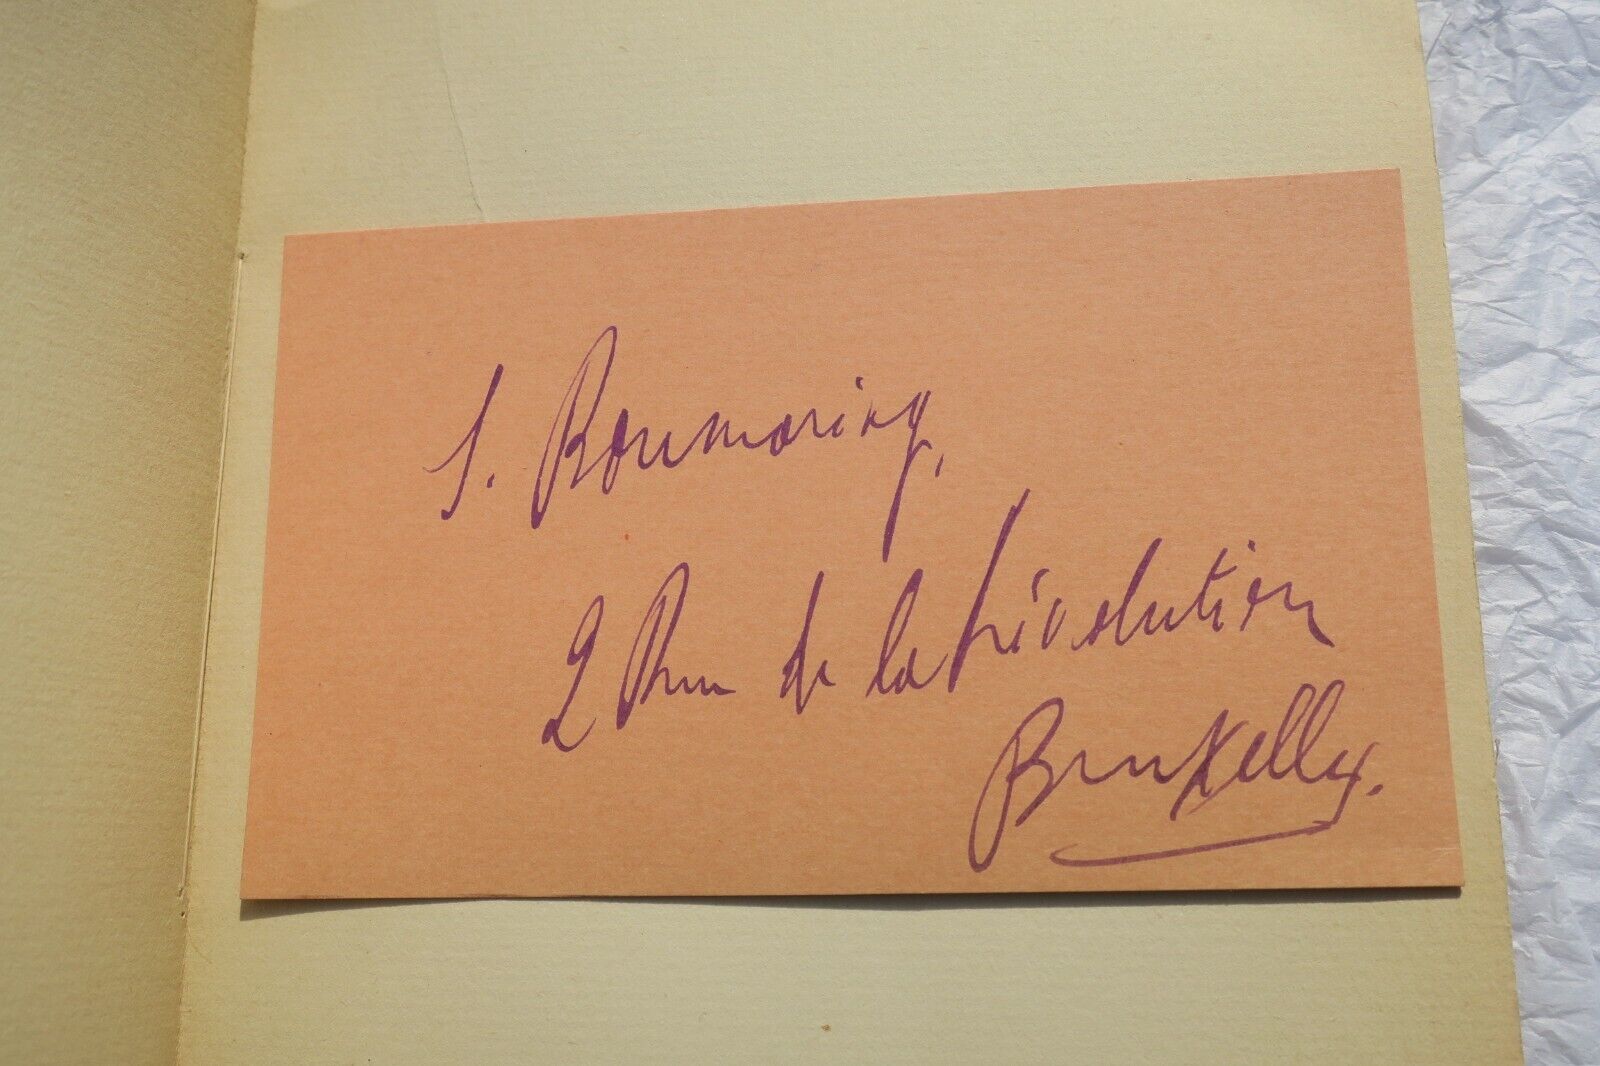 S. Roumoring.
2 Rue de la Révolution
Bruxelles.